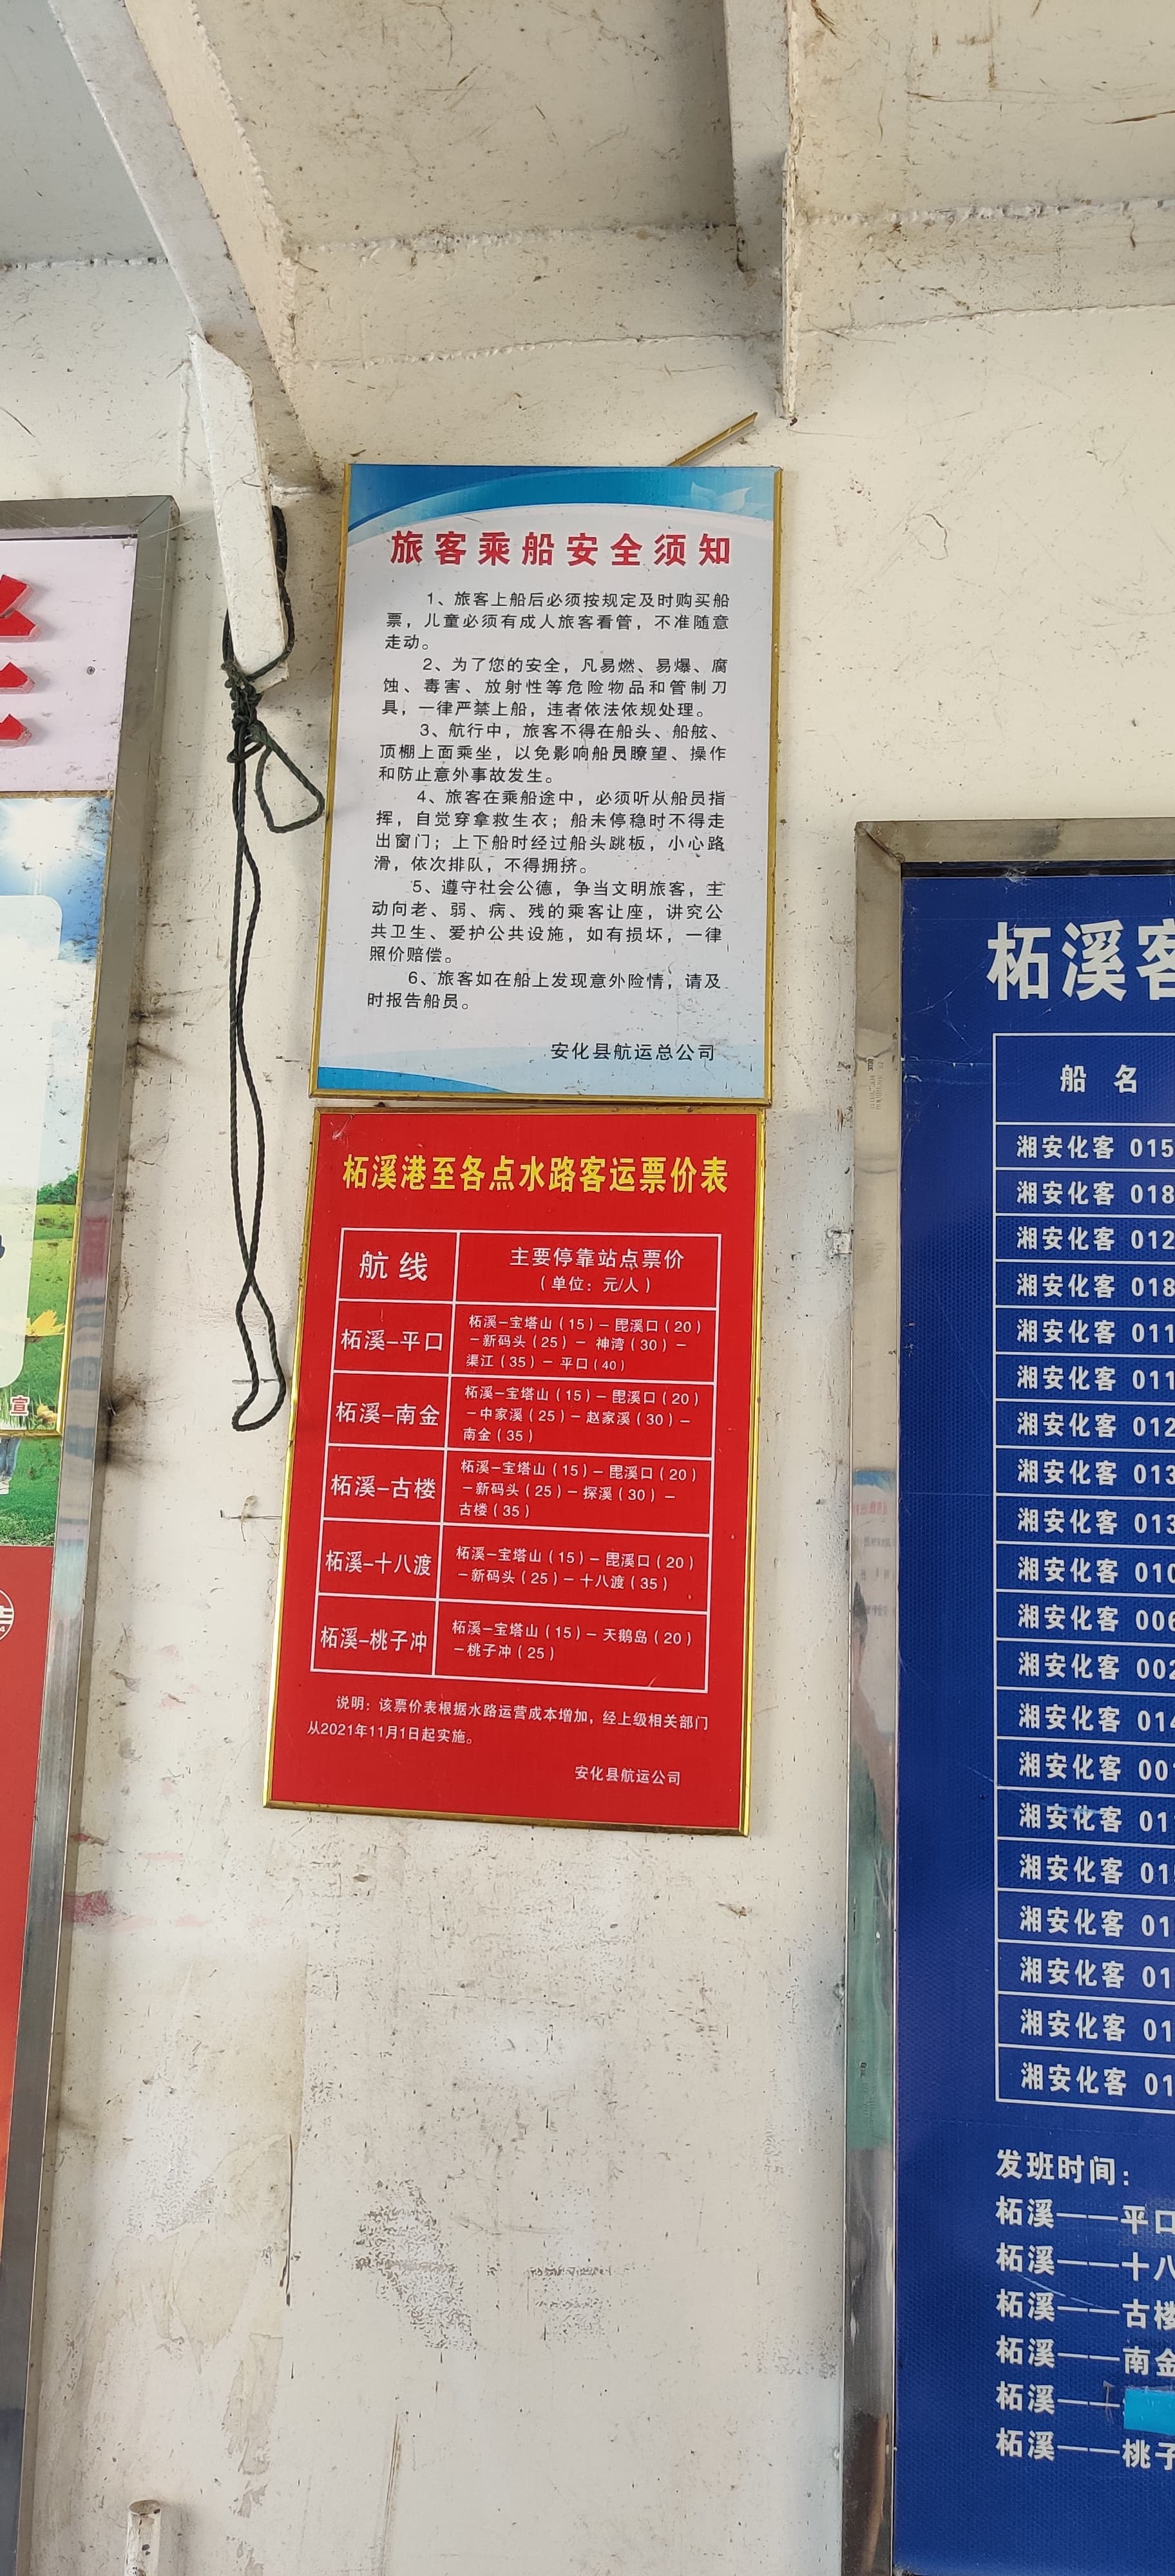 旅客乘船安全须知
1、旅客上船后必须按规定及时购买船
票，儿童必须有成人旅客看管，不准随意
走动。
2、为了您的安全，凡易燃、易爆、腐
蚀、毒害、放射性等危险物品和管制刀
具，一律严禁上船，违者依法依规处理。
3、航行中，旅客不得在船头、船舷、
顶棚上面乘坐，以免影响船员瞭望、操作
和防止意外事故发生。
4、旅客在乘船途中，必须听从船员指
挥，自觉穿拿救生衣；船未停稳时不得走
出窗门；上下船时经过船头跳板，小心路
滑，依次排队，不得拥挤。
5、遵守社会公德，争当文明旅客，主
动向老、弱、病、残的乘客让座，讲究公
共卫生、爱护公共设施，如有损坏，一律
照价赔偿。
6、旅客如在船上发现意外险情，请及
时报告船员。
安化县航运总公司
柘溪港至各点水路客运票价表
航线
主要停靠站点票价
（单位：元/人）
柘溪–平口
柘溪–宝塔山（15）– 毘溪口（20）
–新码头（25）– 神湾（30）–
渠江（35）– 平口（40）
柘溪–南金
柘溪–宝塔山（15）– 毘溪口（20）
–中家溪（25）– 赵家溪（30）–
南金（35）
柘溪–古楼
柘溪–宝塔山（15）– 毘溪口（20）
–新码头（25）– 探溪（30）–
古楼（35）
柘溪–十八渡
柘溪–宝塔山（15）– 毘溪口（20）
–新码头（25）– 十八渡（35）
柘溪–桃子冲
柘溪–宝塔山（15）– 天鹅岛（20）
–桃子冲（25）
说明：该票价表根据水路运营成本增加，经上级相关部门
从2021年11月1日起实施。
安化县航运公司
宣
柘溪客
船 名
湘安化客 015
湘安化客 018
湘安化客 012
湘安化客 018
湘安化客 011
湘安化客 011
湘安化客 012
湘安化客 013
湘安化客 013
湘安化客 010
湘安化客 006
湘安化客 002
湘安化客 014
湘安化客 001
湘安化客 01
湘安化客 01
湘安化客 01
湘安化客 01
湘安化客 01
湘安化客 01
发班时间：
柘溪——平口
柘溪——十八
柘溪——古楼
柘溪——南金
柘溪——
柘溪——桃子